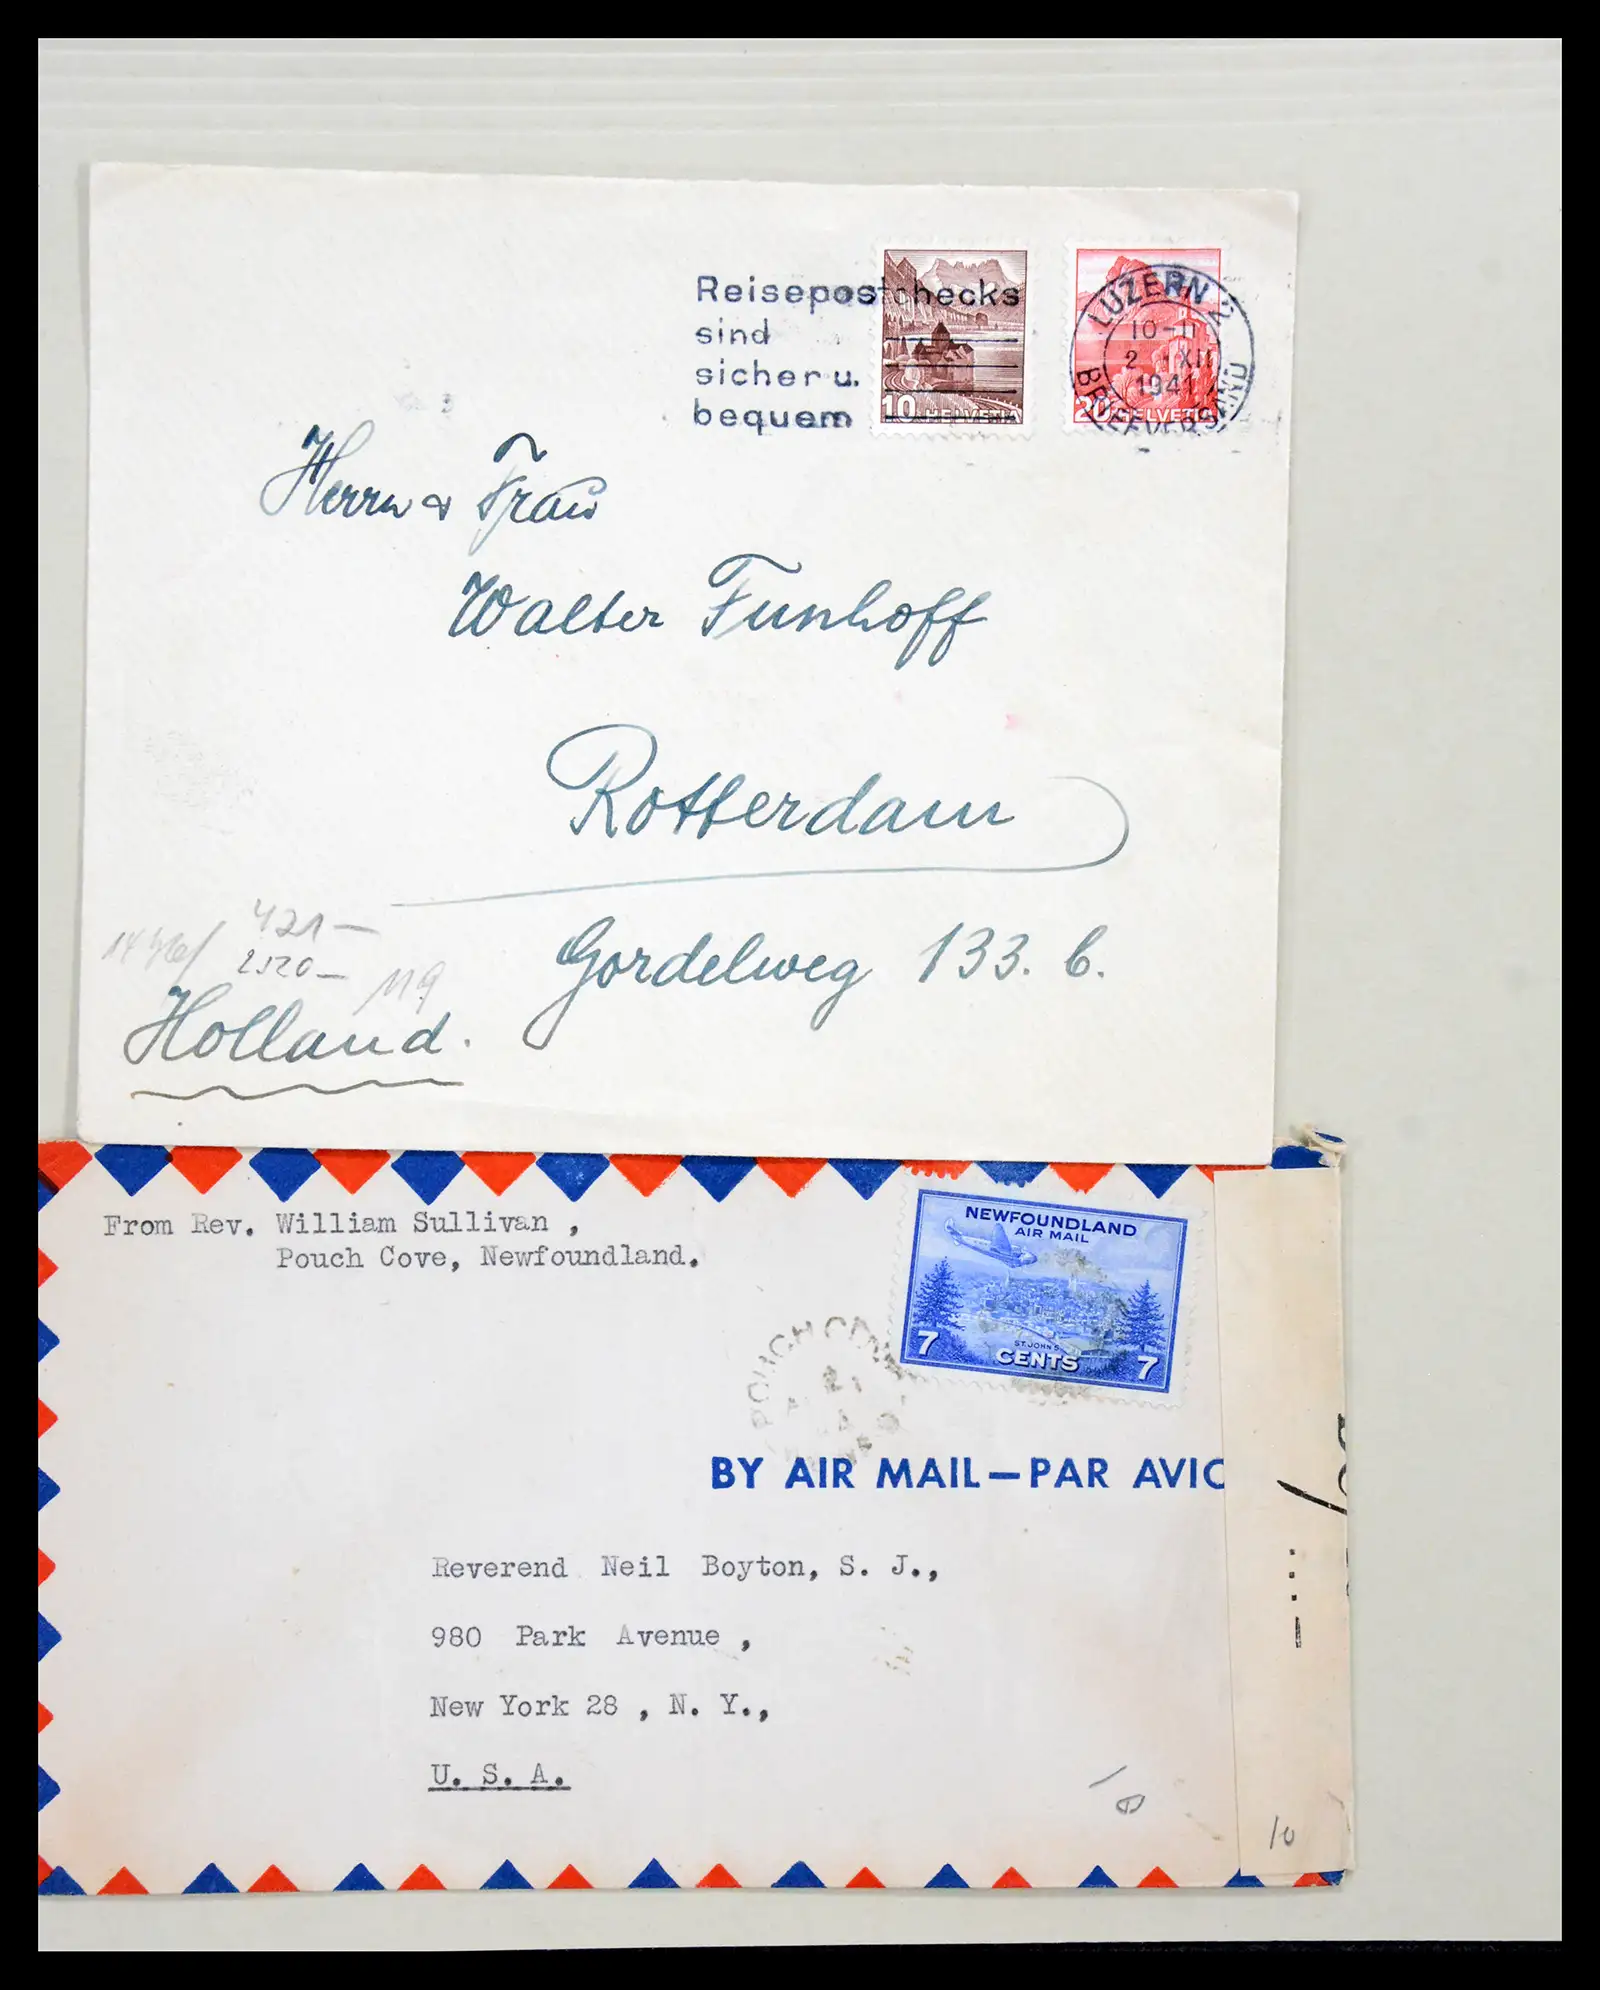 Reisepostchecks
sind
sicher u.
bequem
10 HELVETIA
20 HELVETIA
LUZERN
10-11
2 XII
1941
BRIEFVERSAND
Herrn & Frau
Walter Funhoff
Rotterdam
Gordelweg 133. b.
421—
2520—
119
Holland.
From Rev. William Sullivan ,
Pouch Cove, Newfoundland.
NEWFOUNDLAND
AIR MAIL
ST. JOHN'S
7 CENTS 7
POUCH COVE
BY AIR MAIL—PAR AVIO
Reverend Neil Boyton, S. J.,
980 Park Avenue ,
New York 28 , N. Y.,
U. S. A.
10